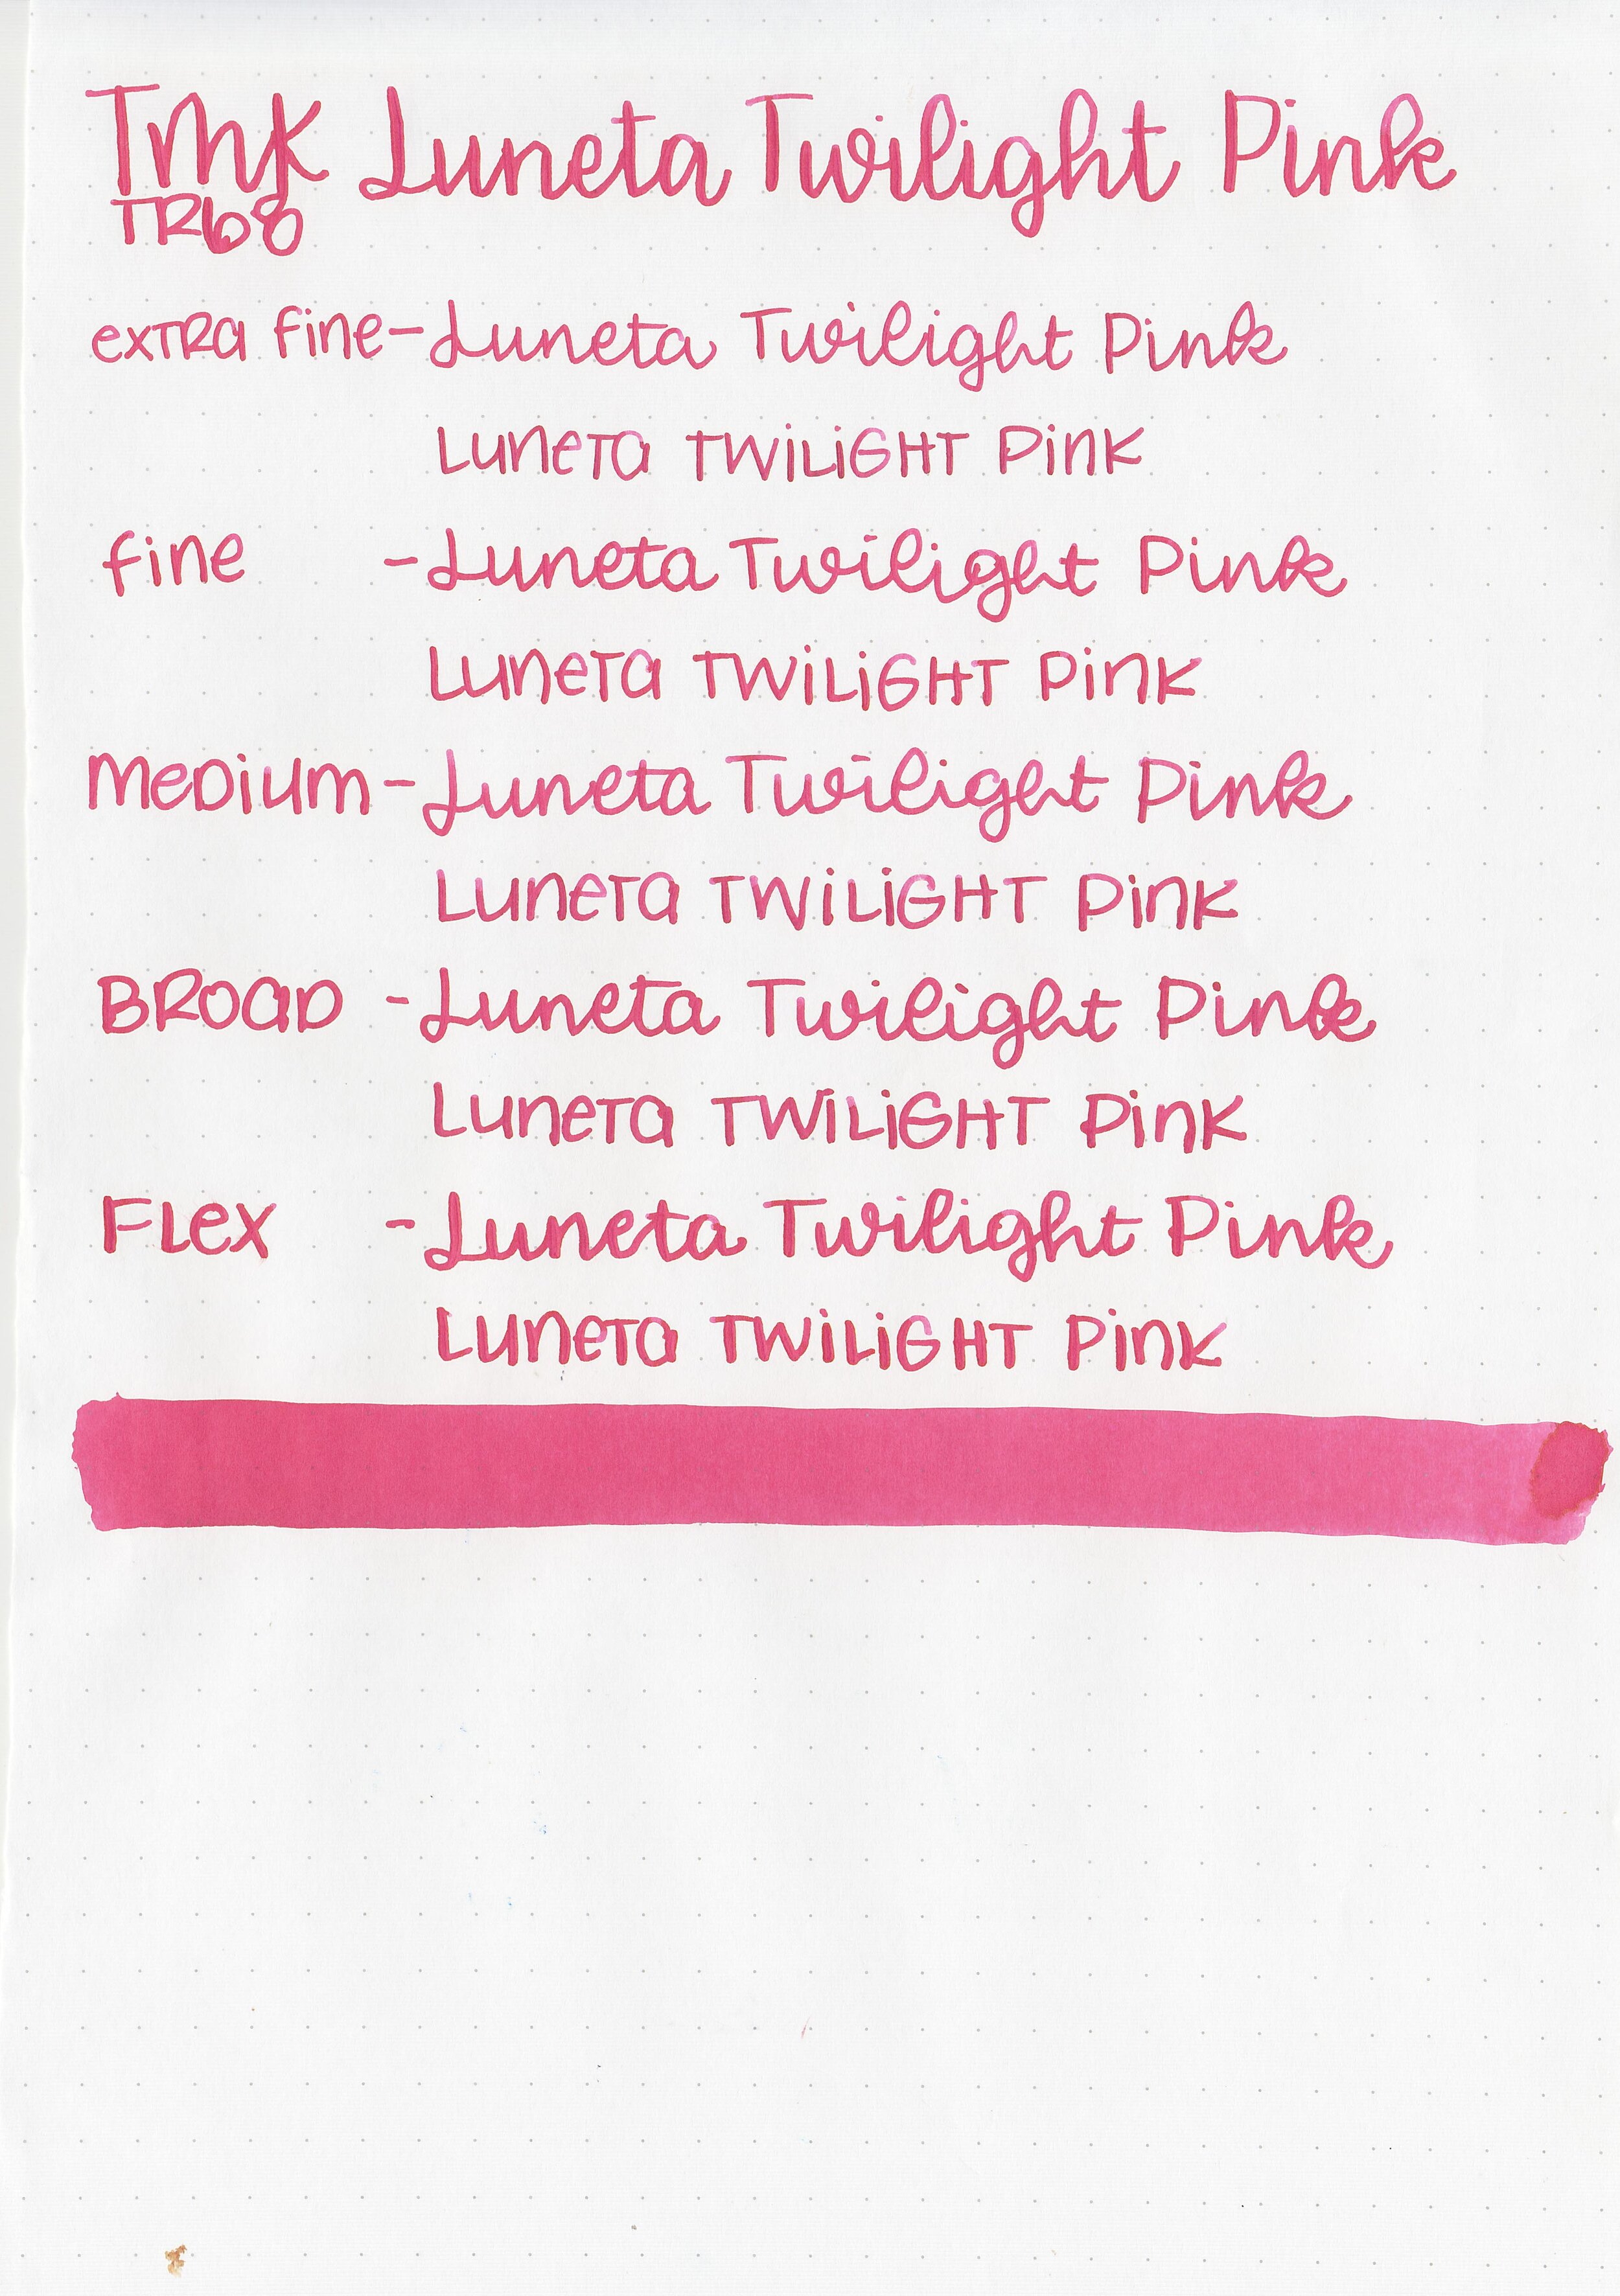 TMK Luneta Twilight Pink
TR68
extra fine - Luneta Twilight Pink
Luneta Twilight Pink
fine - Luneta Twilight Pink
Luneta Twilight Pink
Medium - Luneta Twilight Pink
Luneta Twilight Pink
Broad - Luneta Twilight Pink
Luneta Twilight Pink
Flex - Luneta Twilight Pink
Luneta Twilight Pink